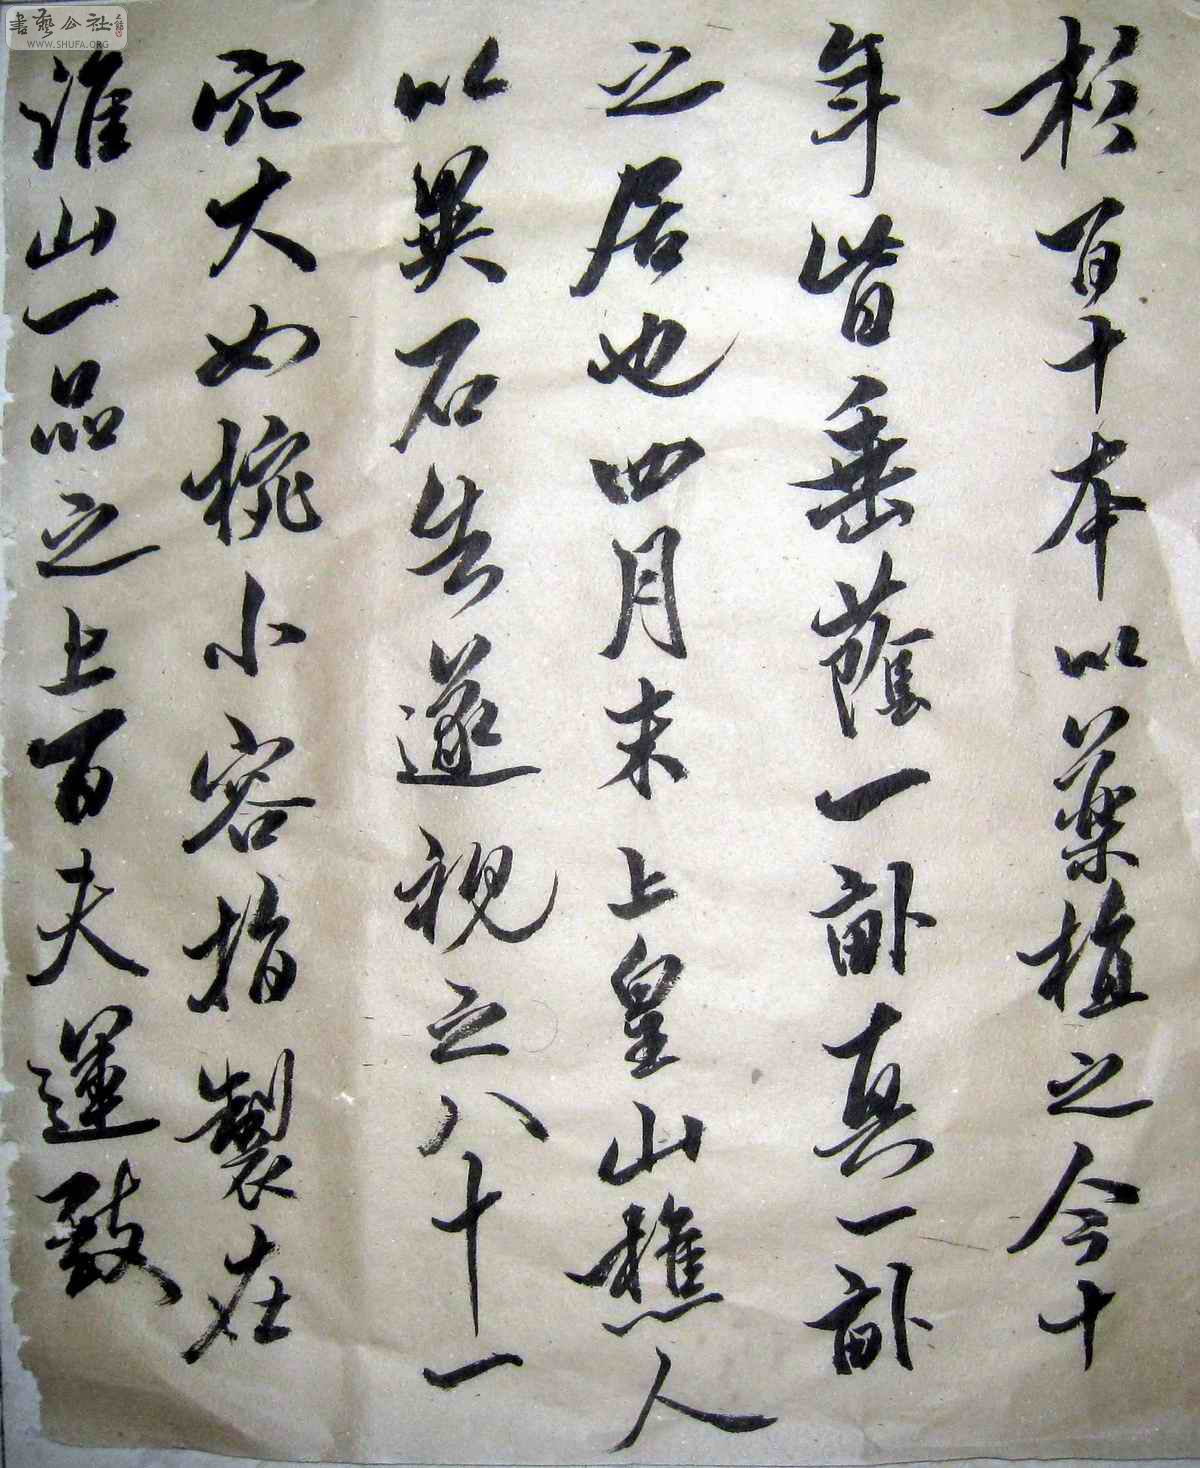 杉百十本以藥植之今十
年皆垂蔭一畝真一畝
之居也四月末上皇山樵人
以異石告遂視之八十一
穴大如椀小容指製在
淮山一品之上百夫運致
書藝公社
WWW.SHUFA.ORG